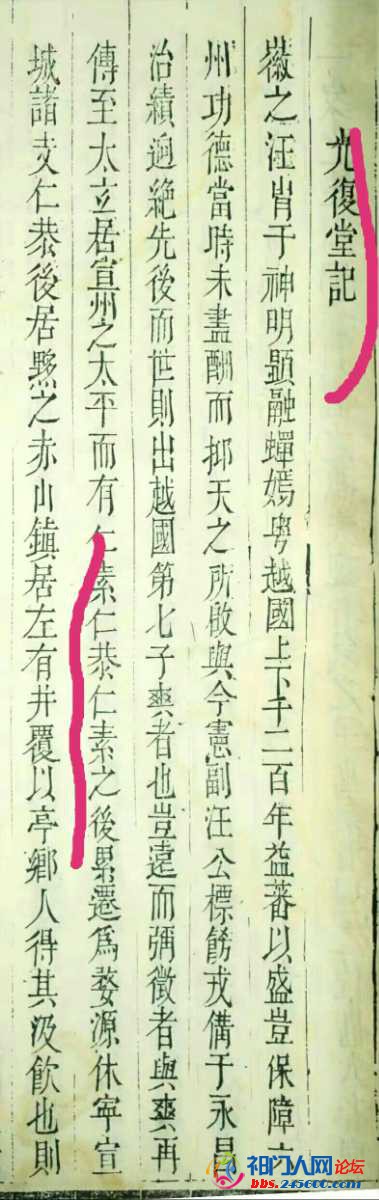 光復堂記
徽之汪胄于神明顯融蟬嫣㽔越國上下千二百年益蕃以盛豈保障六
州功德當時未盡酬而抑天之所啟與今憲副汪公標飭戎備于永昌
治績迥絶先後而世則出越國第七子爽者也豈遠而彌徵者與爽再
傳至太立居宣州之太平而有仁素仁恭仁素之後累遷爲婺源休寧宣
城諸支仁恭後居黟之赤山鎮居左有井覆以亭鄉人得其汲飲也則
祁门人网论坛
bbs.245600.com